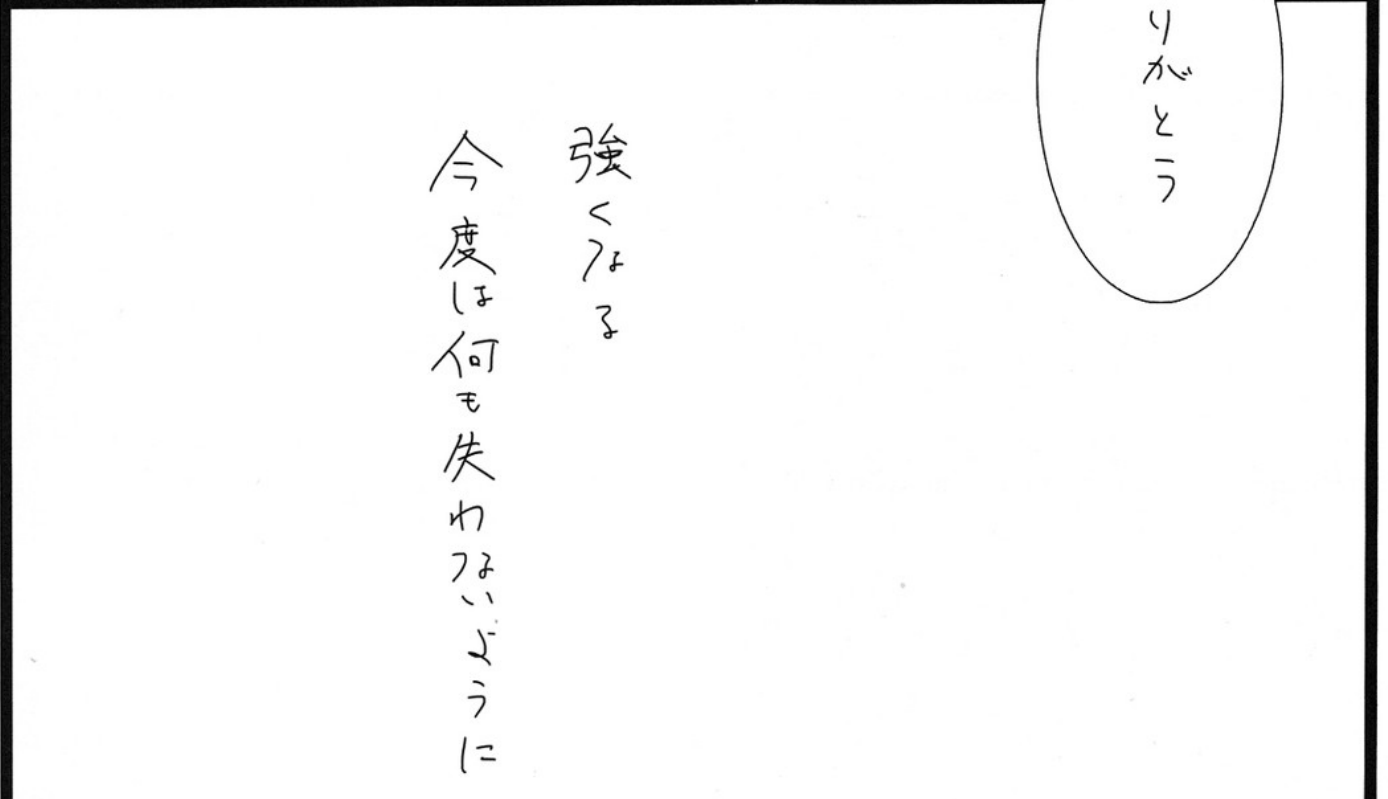 りがとう
強くなる
今度は何も失わないように